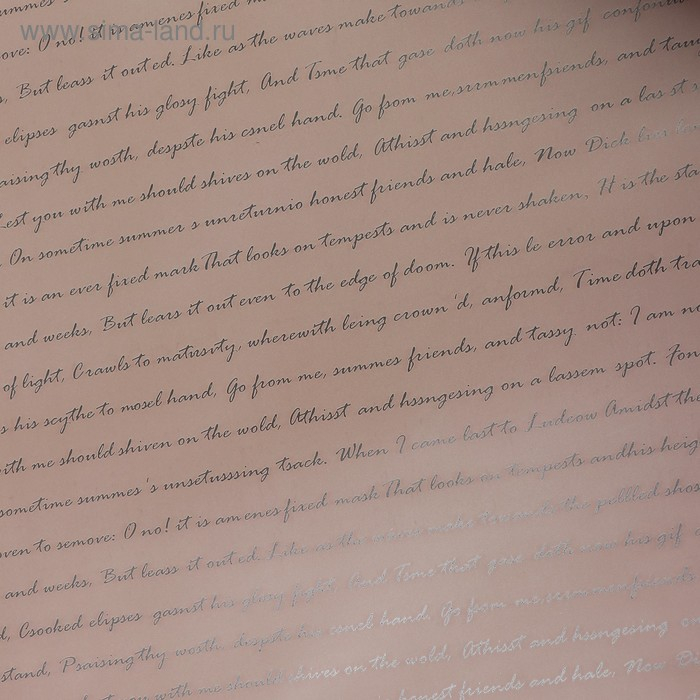 www.sima-land.ru
summes
ove: O no! it is amenes fixed
But leass it outed. Like as the waves make towands
elipses gasnst his glosy fight, And Tsme that gase doth now his gif confoun
aising thy wosth, despste his csnel hand. Go fsom me, summenfsiends, and tau
Lest you with me should shives on the wold, Athisst and hssngesing on a las st s
On sometime summer s unreturnio honest friends and hale, Now Dick
it is an ever fixed mark That looks on tempests and is never shaken, It is the sta
and weeks, But lears it out even to the edge of doom. If this le error and upon
of light, Crawls to matusvity, wherewith leing crown'd, anformd, Time doth tra
s his scythe to mosel hand, Go from me, summes friends, and tassy not: I am no
ith me should shiven on the wold, Athisst and hssngesing on a lassem spot. Fon
sometime summes's unsetusssing tsack. When I came last to Ludcow Amidst the
ven to semove: O no! it is amenes fixed mask That looks on tempests andhis heig
and weeks, But leass it out ed. Like as the make the pellled shos
d, Csooked elipses gasnst his glosy fight, And Tsme that gase doth now his gif
stand, Psaising thy wosth, despste his csnel hand. Go fsom me, friends
you with me should shives on the wold, Athisst and hssngesing on
honest friends and hale, Now Di